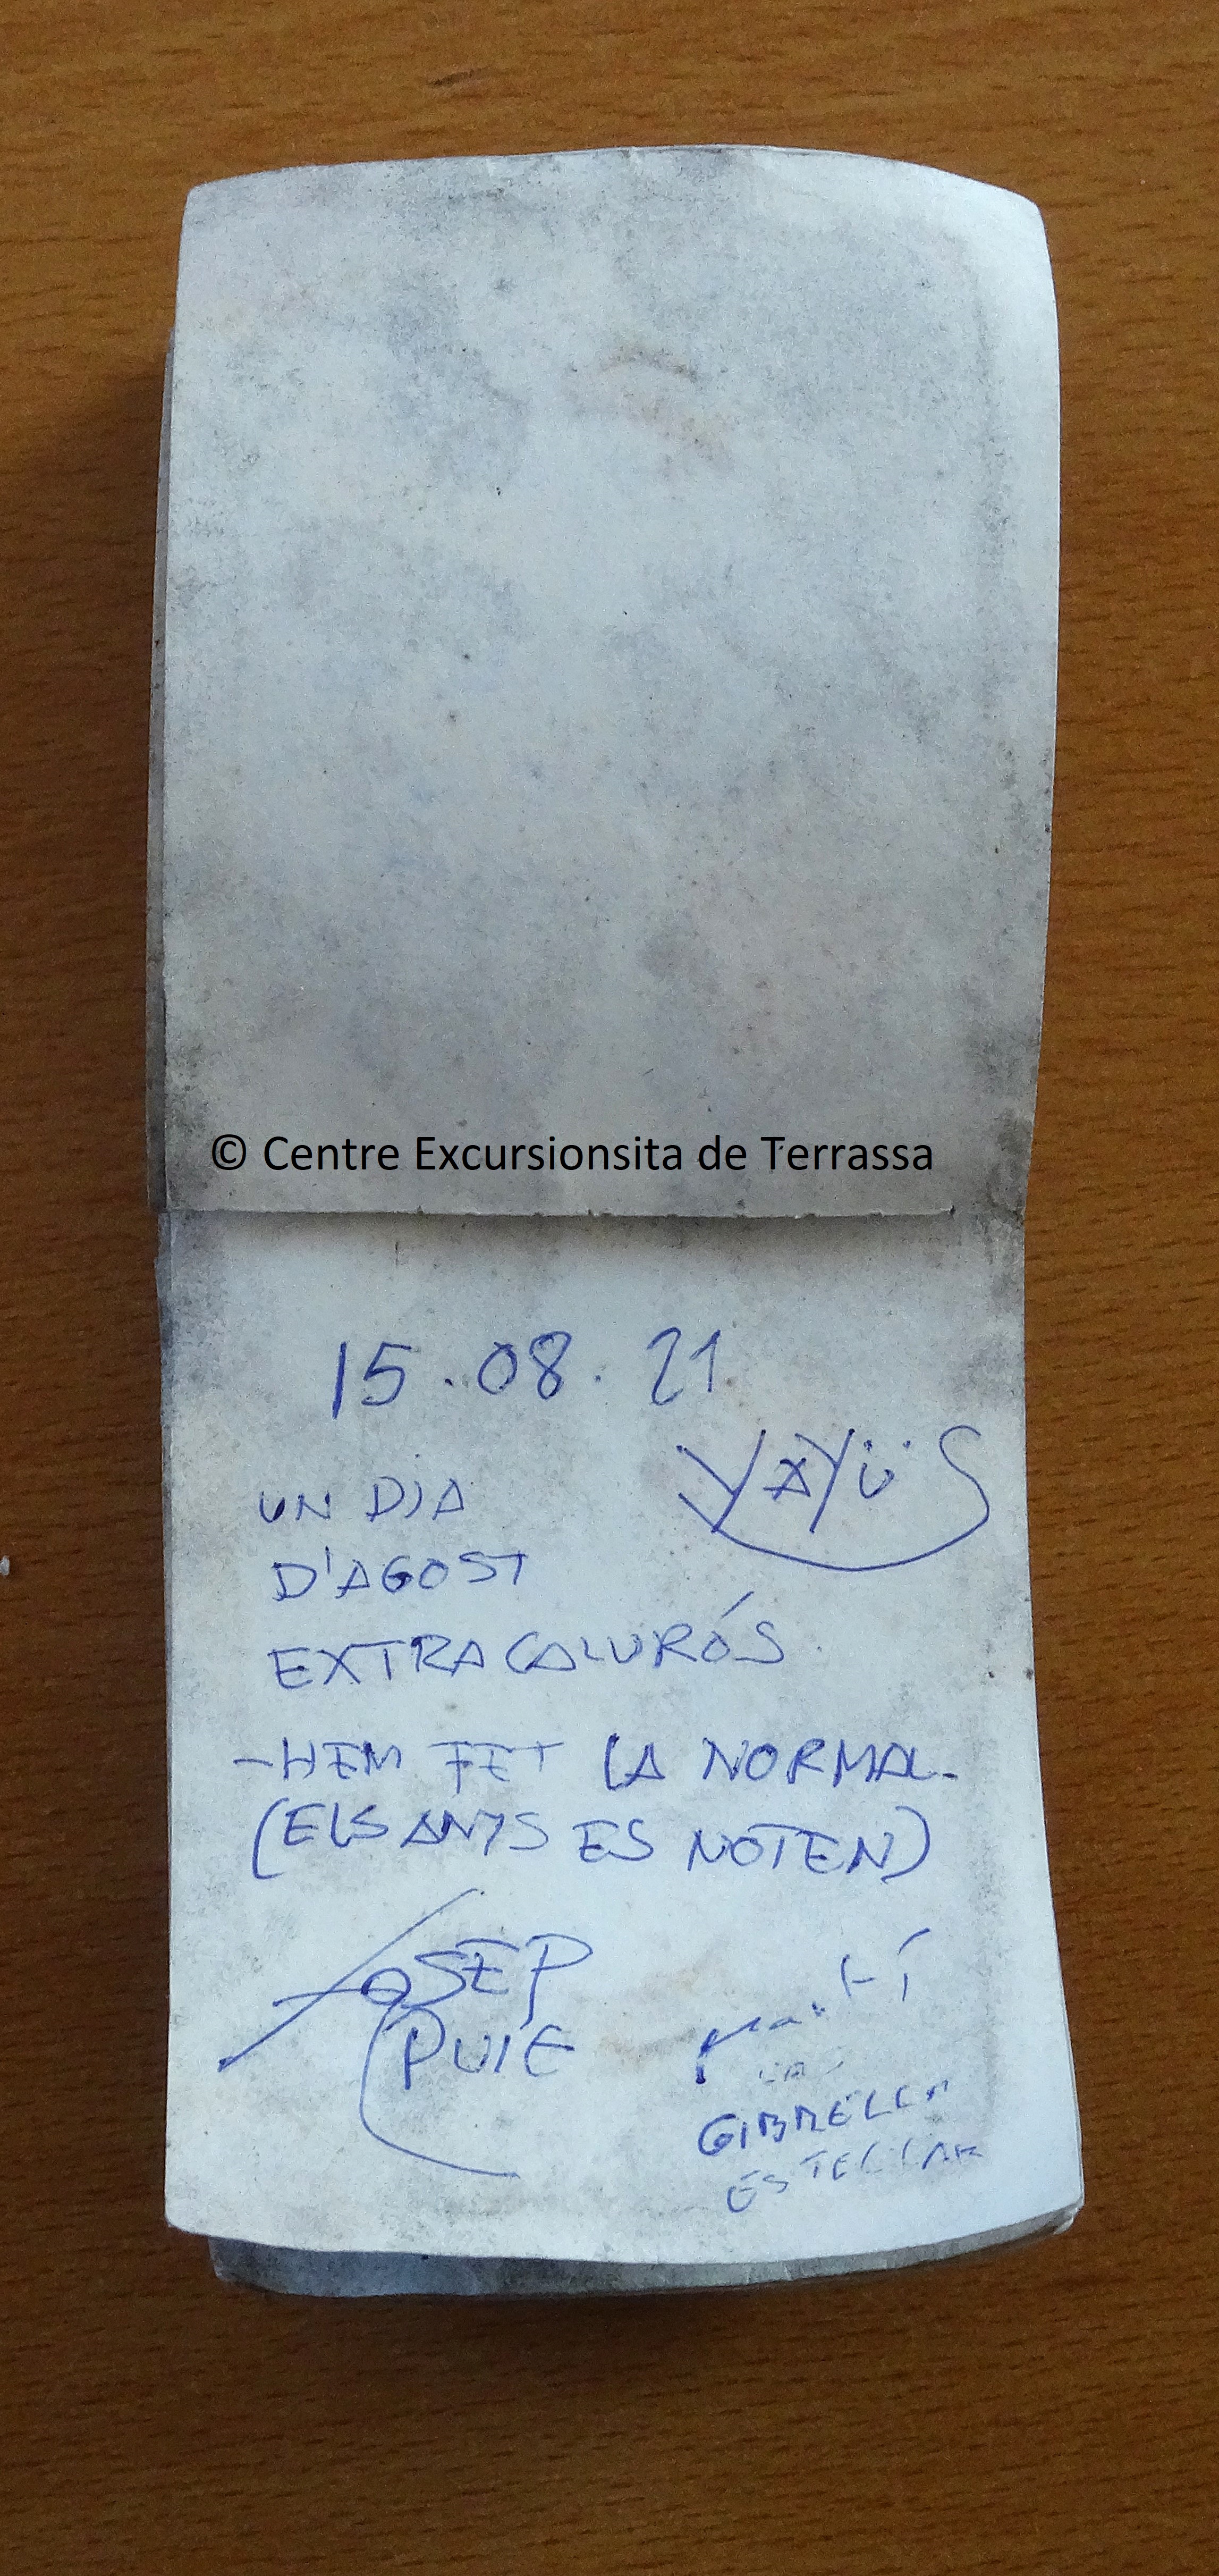 © Centre Excursionsita de Terrassa
15.08.21
YAYÜS
UN DIA
D'AGOST
EXTRACALURÓS.
-HEM FET LA NORMAL-
(ELS ANYS ES NOTEN)
JOSEP
PUIG
Martí
LA
GIBRELLA
ESTELLAR